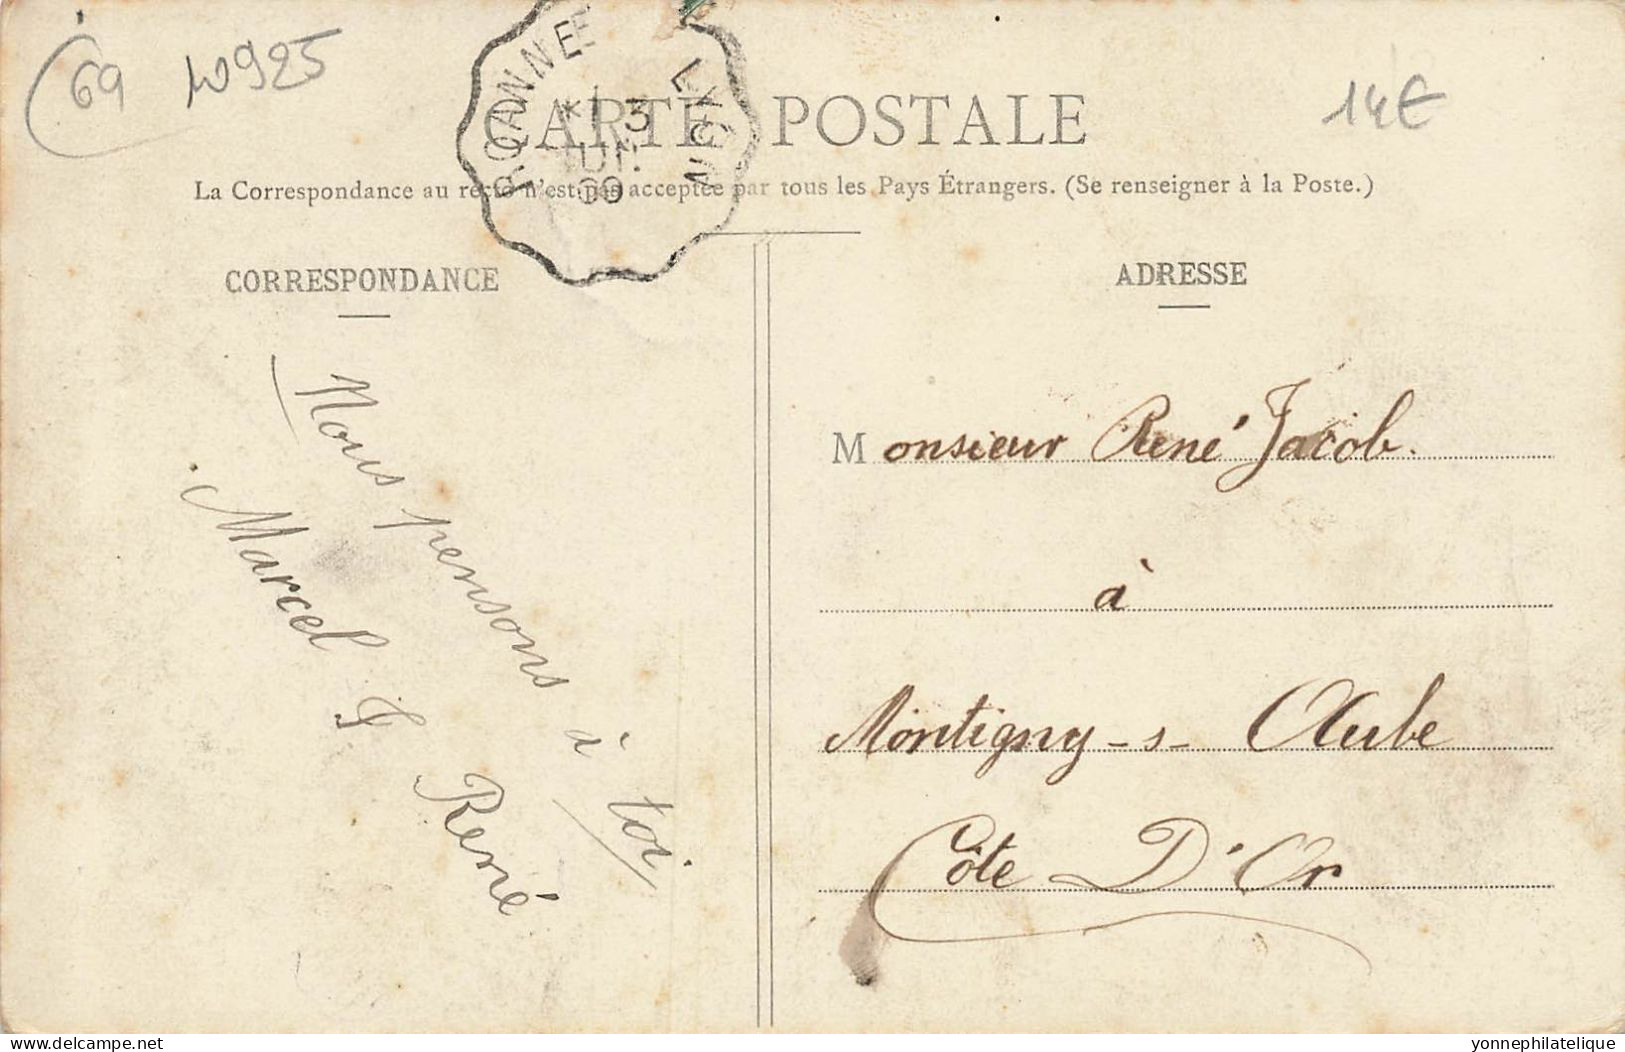 69
10925
14€
ROANNE
LYON
3
CARTE POSTALE
La Correspondance au recto n'est pas acceptée par tous les Pays Étrangers. (Se renseigner à la Poste.)
CORRESPONDANCE
Nous pensons à toi
Marcel & René
ADRESSE
Monsieur René Jacob.
à
Montigny-s-Aube
Côte D'Or
yonnephilatelique
yonnephilatelique.com